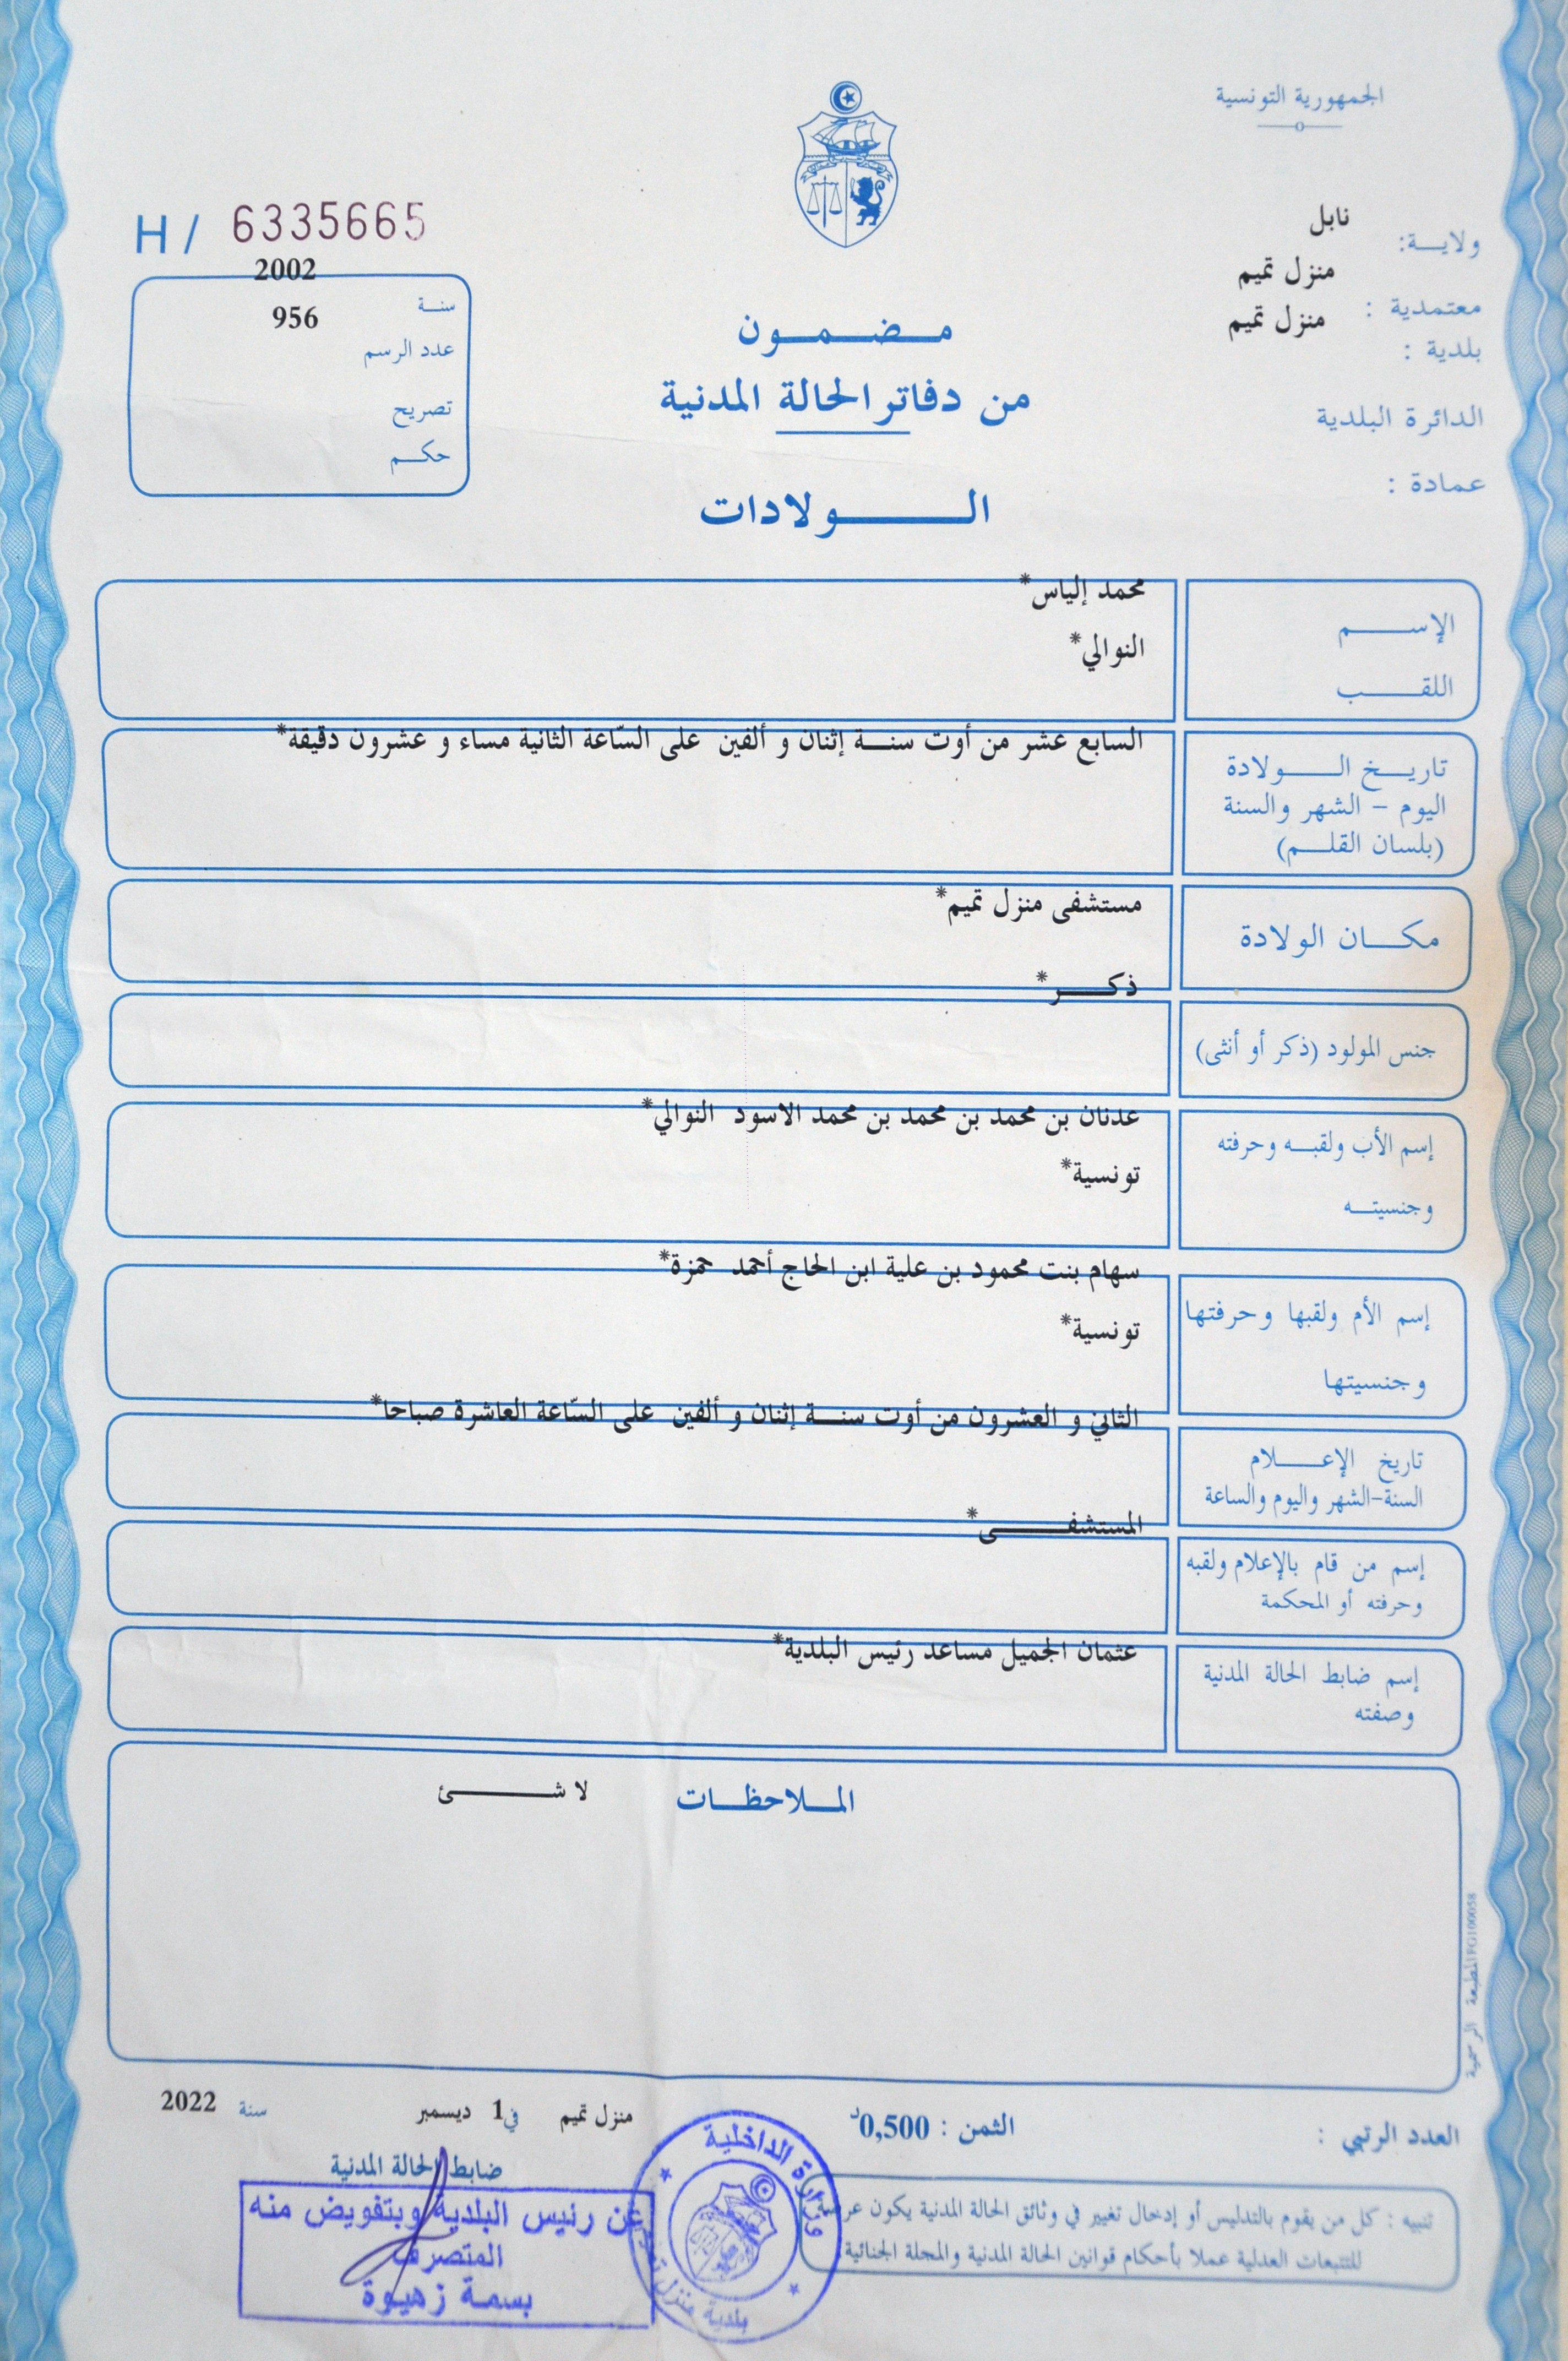 الجمهورية التونسية
ولاية: نابل
معتمدية : منزل تميم
بلدية : منزل تميم
الدائرة البلدية
عمادة :
H/ 6335665
سنة 2002
عدد الرسم 956
تصريح
حكم
مضمون
من دفاتر الحالة المدنية
الولادات
الإسم محمد إلياس*
اللقب النوالي*
تاريخ الولادة
اليوم - الشهر والسنة
(بلسان القلم)
السابع عشر من أوت سنة إثنان و ألفين على السّاعة الثانية مساء و عشرون دقيقة*
مكان الولادة
مستشفى منزل تميم*
جنس المولود (ذكر أو أنثى)
ذكر*
إسم الأب ولقبه وحرفته
وجنسيته
عدنان بن محمد بن محمد بن محمد الاسود النوالي*
تونسية*
إسم الأم ولقبها وحرفتها
وجنسيتها
سهام بنت محمود بن علية ابن الحاج أحمد حمزة*
تونسية*
تاريخ الإعلام
السنة-الشهر واليوم والساعة
الثاني و العشرون من أوت سنة إثنان و ألفين على السّاعة العاشرة صباحا*
إسم من قام بالإعلام ولقبه
وحرفته أو المحكمة
المستشفى*
إسم ضابط الحالة المدنية
وصفته
عثمان الجميل مساعد رئيس البلدية*
الملاحظات لا شئ
المطبعة الرسمية FG100058
العدد الرتبي :
الثمن : 0,500د
منزل تميم في 1 ديسمبر سنة 2022
ضابط الحالة المدنية
عن رئيس البلدية وبتفويض منه
المتصرف
بسمة زهيوة
وزارة الداخلية
بلدية منزل تميم
تنبيه : كل من يقوم بالتدليس أو إدخال تغيير في وثائق الحالة المدنية يكون عرضة
للتتبعات العدلية عملا بأحكام قوانين الحالة المدنية والمجلة الجنائية